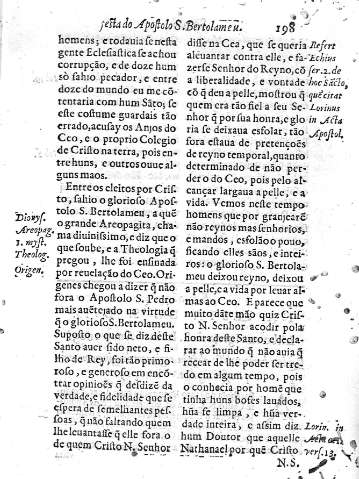 festa do Apostolo S. Bertolameu. 198
homens; e todauia se nesta
gente Eclesiastica se achou
corrupção, e de doze hum
só sahio pecador, e entre
doze do mundo eu me cõ-
tentaria com hum Sãto; se
este costume guardais tão
errado, acusay os Anjos do
Ceo, e o proprio Colegio
de Cristo na terra, pois en-
tre huns, e outros ouue al-
guns maos.
Entre os eleitos por Cris-
to, sahio o glorioso Apos-
tolo S. Bertolameu, a quẽ
o grande Areopagita, cha-
ma diuinissimo, e diz que o
que soube, e a Theologia q̃
pregou, lhe foi ensinada
por reuelação do Ceo. Ori-
genes chegou a dizer q̃ não
fora o Apostolo S. Pedro
mais auẽtejado na virtude
q̃ o glorioso S. Bertolameu.
Suposto o que se diz deste
Santo auer sido neto, e fi-
lho de Rey, foi tão primo-
roso, e generoso em encon-
trar opiniões q̃ desdizẽ da
verdade, e fidelidade que se
espera de semelhantes pes-
soas, q̃ não faltando quem
lhe leuantasse q̃ elle fora o
de quem Cristo N. Senhor
Dionys.
Areopag.
1. myst.
Theolog.
Origen.
disse na Cea, que se queria
aleuantar contra elle, e fa-
zerse Senhor do Reyno, cõ
a liberalidade, e vontade
cõ q̃ deu a pelle, mostrou q̃
quem era tão fiel a seu Se-
nhor q̃ por sua honra, e glo
ria se deixaua esfolar, tão
fora estaua de pretenções
de reyno temporal, quanto
determinado de não per-
der o do Ceo, pois pelo al-
cançar largaua a pelle, e a
vida. Vemos neste tempo
homens que por granjearẽ
não reynos mas senhorios,
e mandos, esfolão o pouo,
ficando elles sãos, e intei-
ros: o glorioso S. Bertola-
meu deixou reyno, deixou
a pelle, e a vida por leuar al-
mas ao Ceo. E parece que
muito dãte mão quiz Cris-
to N. Senhor acodir pola
honra deste Santo, e decla-
rar ao mundo q̃ não auia q̃
recear de lhe poder ser tre-
do em algum tempo, pois
o conhecia por homẽ que
tinha huns bofes lauados,
hũa se limpa, e hũa ver-
dade inteira, e assim diz
hum Doutor que aquelle
Nathanael por quẽ Cristo
N.S.
Refert
Echius
ser. 2. de
hoc Sãcto,
q̃ citat
Lorinus
in Acta
Apostol.
Lorin. in
vers. 13.